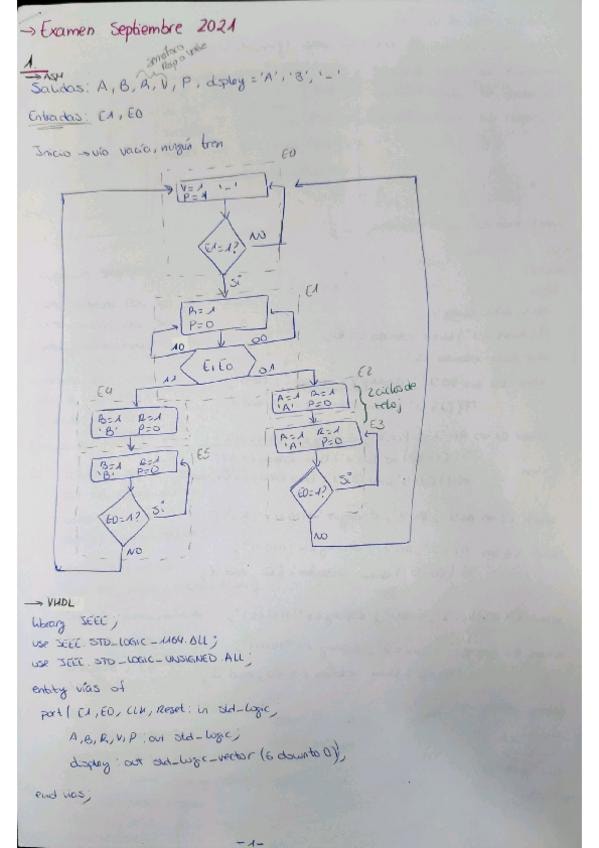 → Examen Septiembre 2021
1.
→ ASM
semáforo
Rojo o Verde
Salidas: A, B, R, V, P, display = 'A', 'B', '_'
Entradas: E1, E0
Inicio → vía vacía, ningún tren
E0
V=1 '_'
P=1
E1=1?
NO
Si
E1
R=1
P=0
10
00
E1E0
11
01
E4
E2
B=1 R=1
'B' P=0
A=1 R=1
'A' P=0
2 ciclos de
reloj
E5
E3
B=1 R=1
'B' P=0
A=1 R=1
'A' P=0
E0=1?
Si
NO
E0=1?
Si
NO
→ VHDL
library IEEE;
use IEEE.STD_LOGIC_1164.ALL;
use IEEE.STD_LOGIC_UNSIGNED.ALL;
entity vias of
port( E1, E0, CLK, Reset: in std_logic;
A, B, R, V, P: out std_logic;
display: out std_logic_vector (6 downto 0));
end vias;
-1-